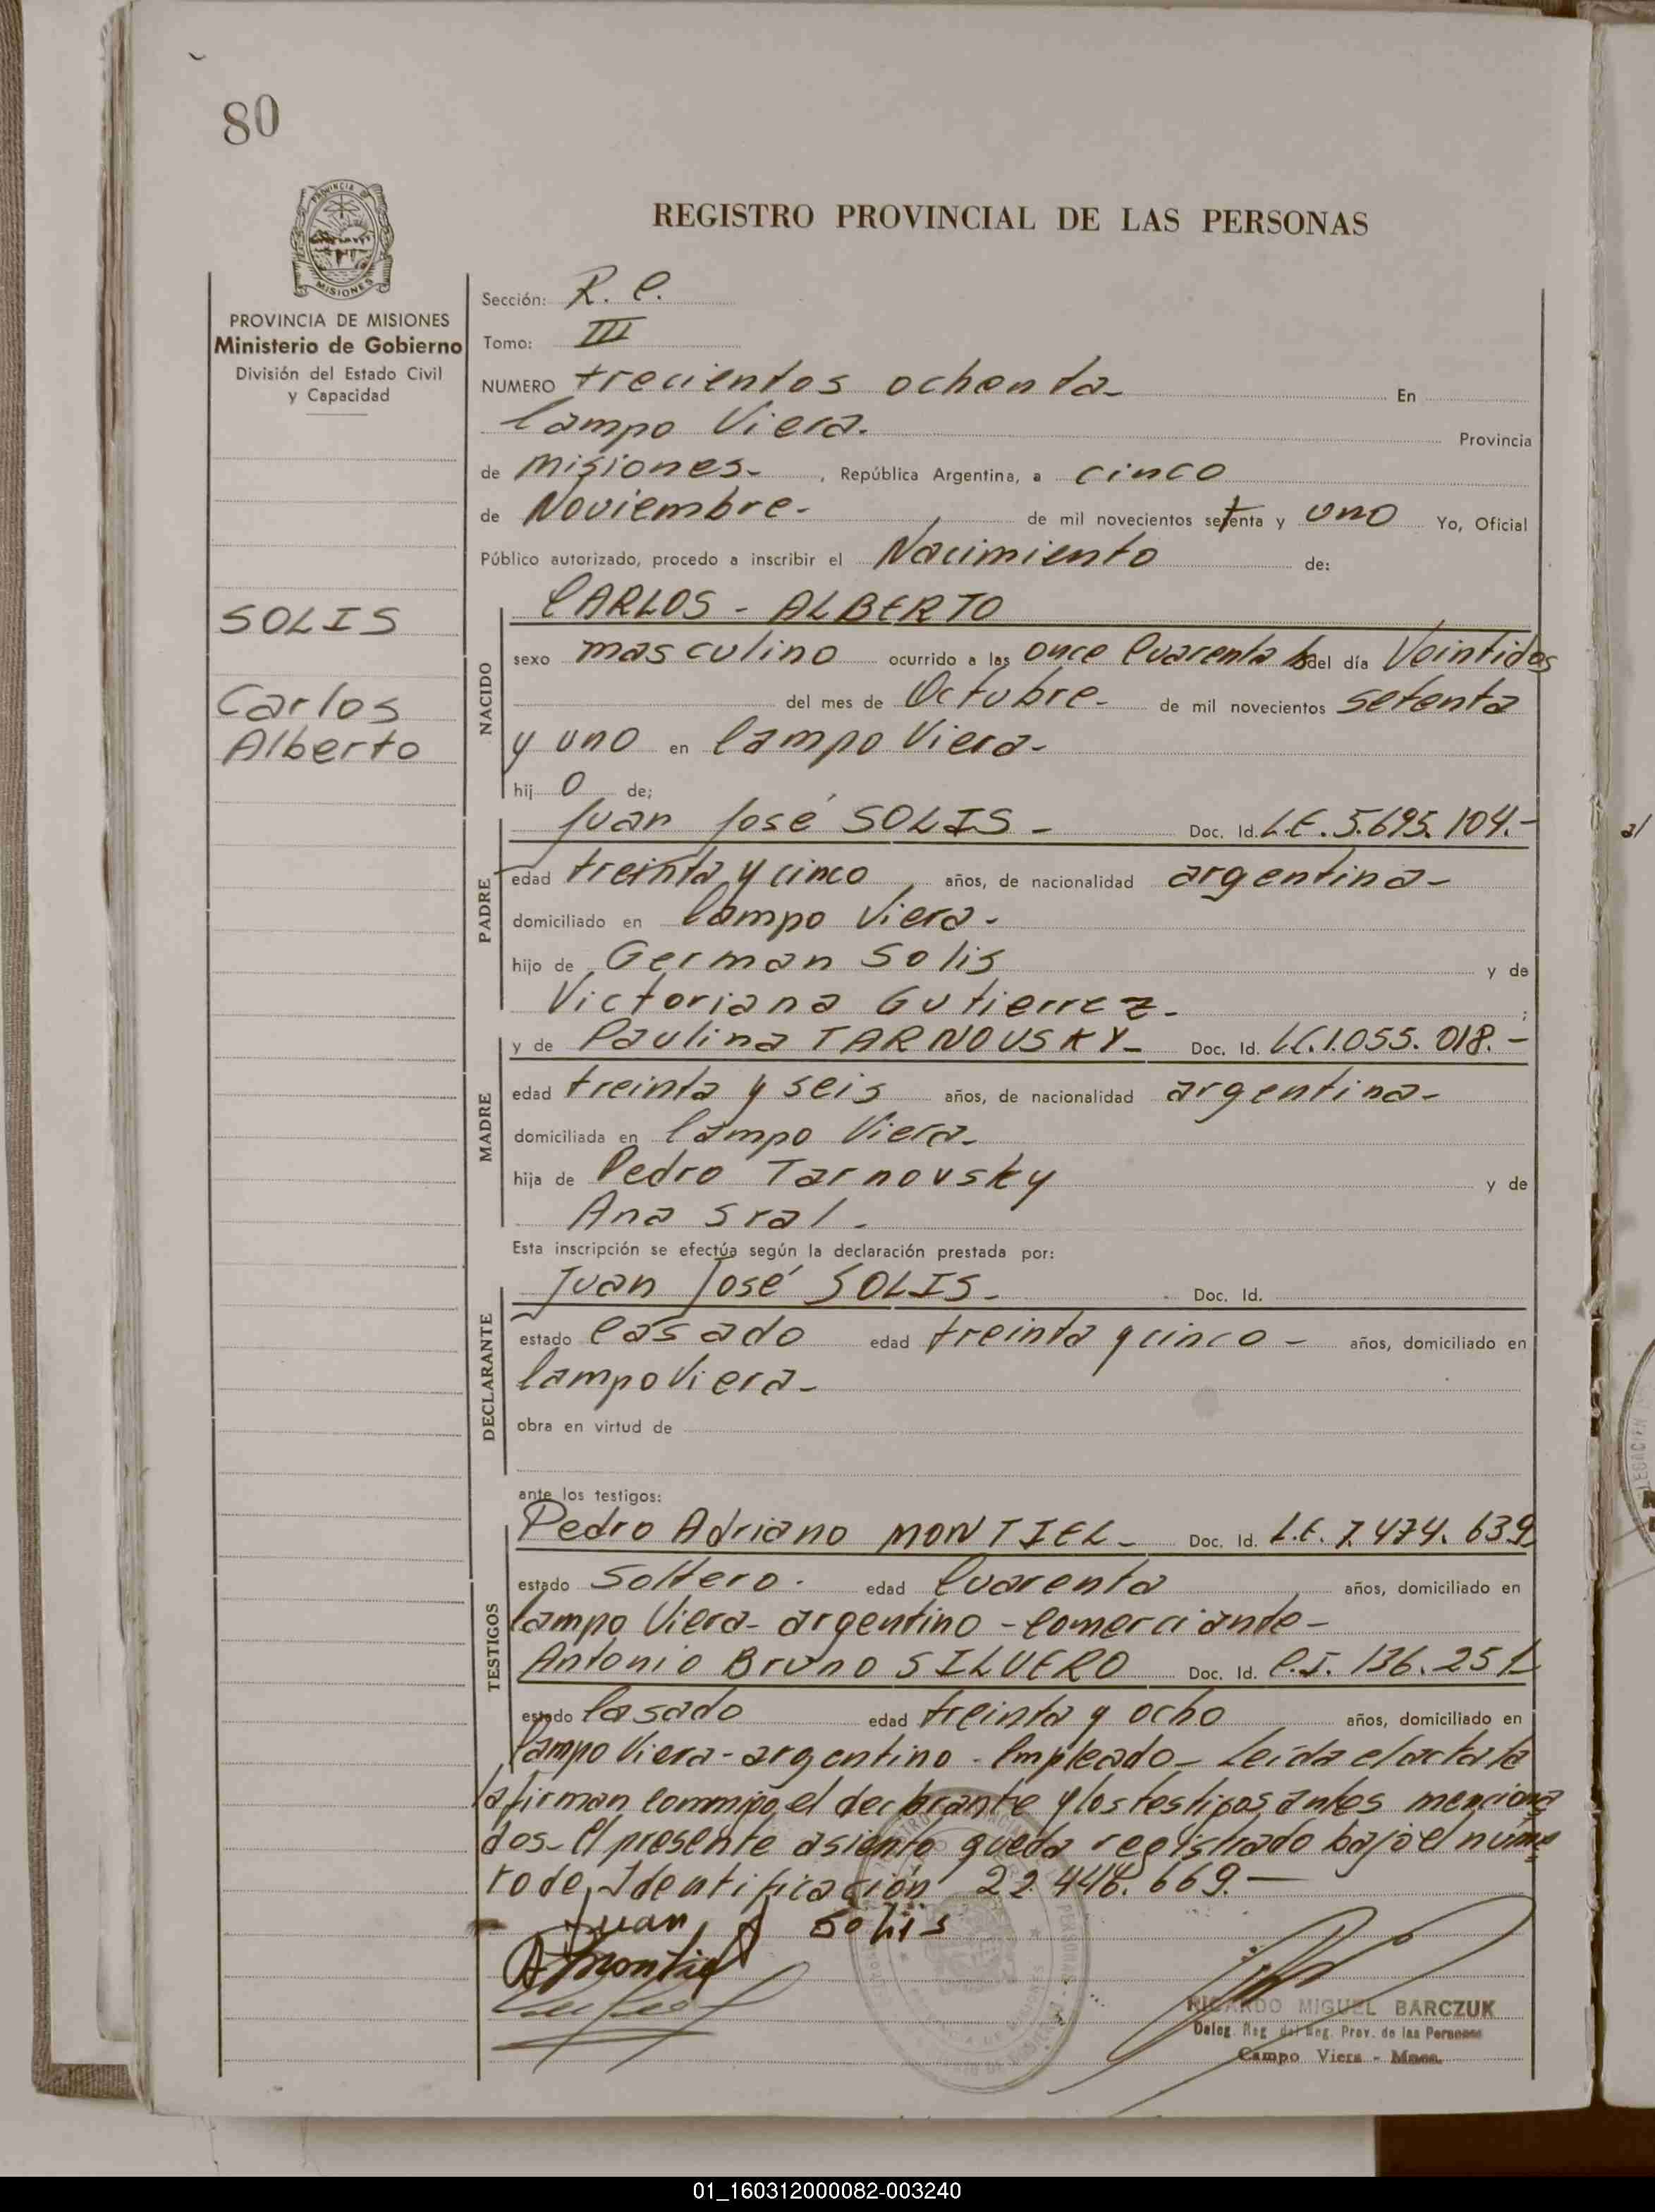 80
PROVINCIA DE MISIONES
Ministerio de Gobierno
División del Estado Civil
y Capacidad
SOLIS
Carlos
Alberto
REGISTRO PROVINCIAL DE LAS PERSONAS
Sección: R. C.
Tomo: III
NUMERO trecientos ochenta- En
Campo Viera. Provincia
de Misiones- , República Argentina, a cinco
de Noviembre- de mil novecientos setenta y uno Yo, Oficial
Público autorizado, procedo a inscribir el Nacimiento de:
NACIDO
CARLOS - ALBERTO
sexo masculino ocurrido a las once Cuarenta hs del día Veintidos
del mes de Octubre- de mil novecientos setenta
y uno en Campo Viera-
hij o de;
PADRE
Juan José SOLIS - Doc. Id. L.E. 5.695.104.-
edad treinta y cinco años, de nacionalidad argentina-
domiciliado en Campo Viera-
hijo de German Solis y de
Victoriana Gutierrez- ;
MADRE
y de Paulina TARNOVSKY- Doc. Id. LC.1.055.018.-
edad treinta y seis años, de nacionalidad argentina-
domiciliada en Campo Viera-
hija de Pedro Tarnovsky y de
Ana Sral-
Esta inscripción se efectúa según la declaración prestada por:
DECLARANTE
Juan José SOLIS- Doc. Id.
estado Casado edad treinta y cinco - años, domiciliado en
Campo Viera-
obra en virtud de
ante los testigos:
TESTIGOS
Pedro Adriano MONTIEL- Doc. Id. L.E. 7.474.639
estado Soltero- edad Cuarenta años, domiciliado en
Campo Viera- argentino - Comerciante-
Antonio Bruno SILVERO Doc. Id. C.I. 136.251
estado Casado edad treinta y ocho años, domiciliado en
Campo Viera- argentino - Empleado- Leída el acta la
la firman conmigo el declarante y los testigos antes menciona
dos- El presente asiento queda registrado bajo el núme
ro de Identificación 22.448.669.-
Juan J Soliis
A Montiel
RICARDO MIGUEL BARCZUK
Deleg. Reg del Reg. Prov. de las Personas
Campo Viera - Mnes.
01_160312000082-003240